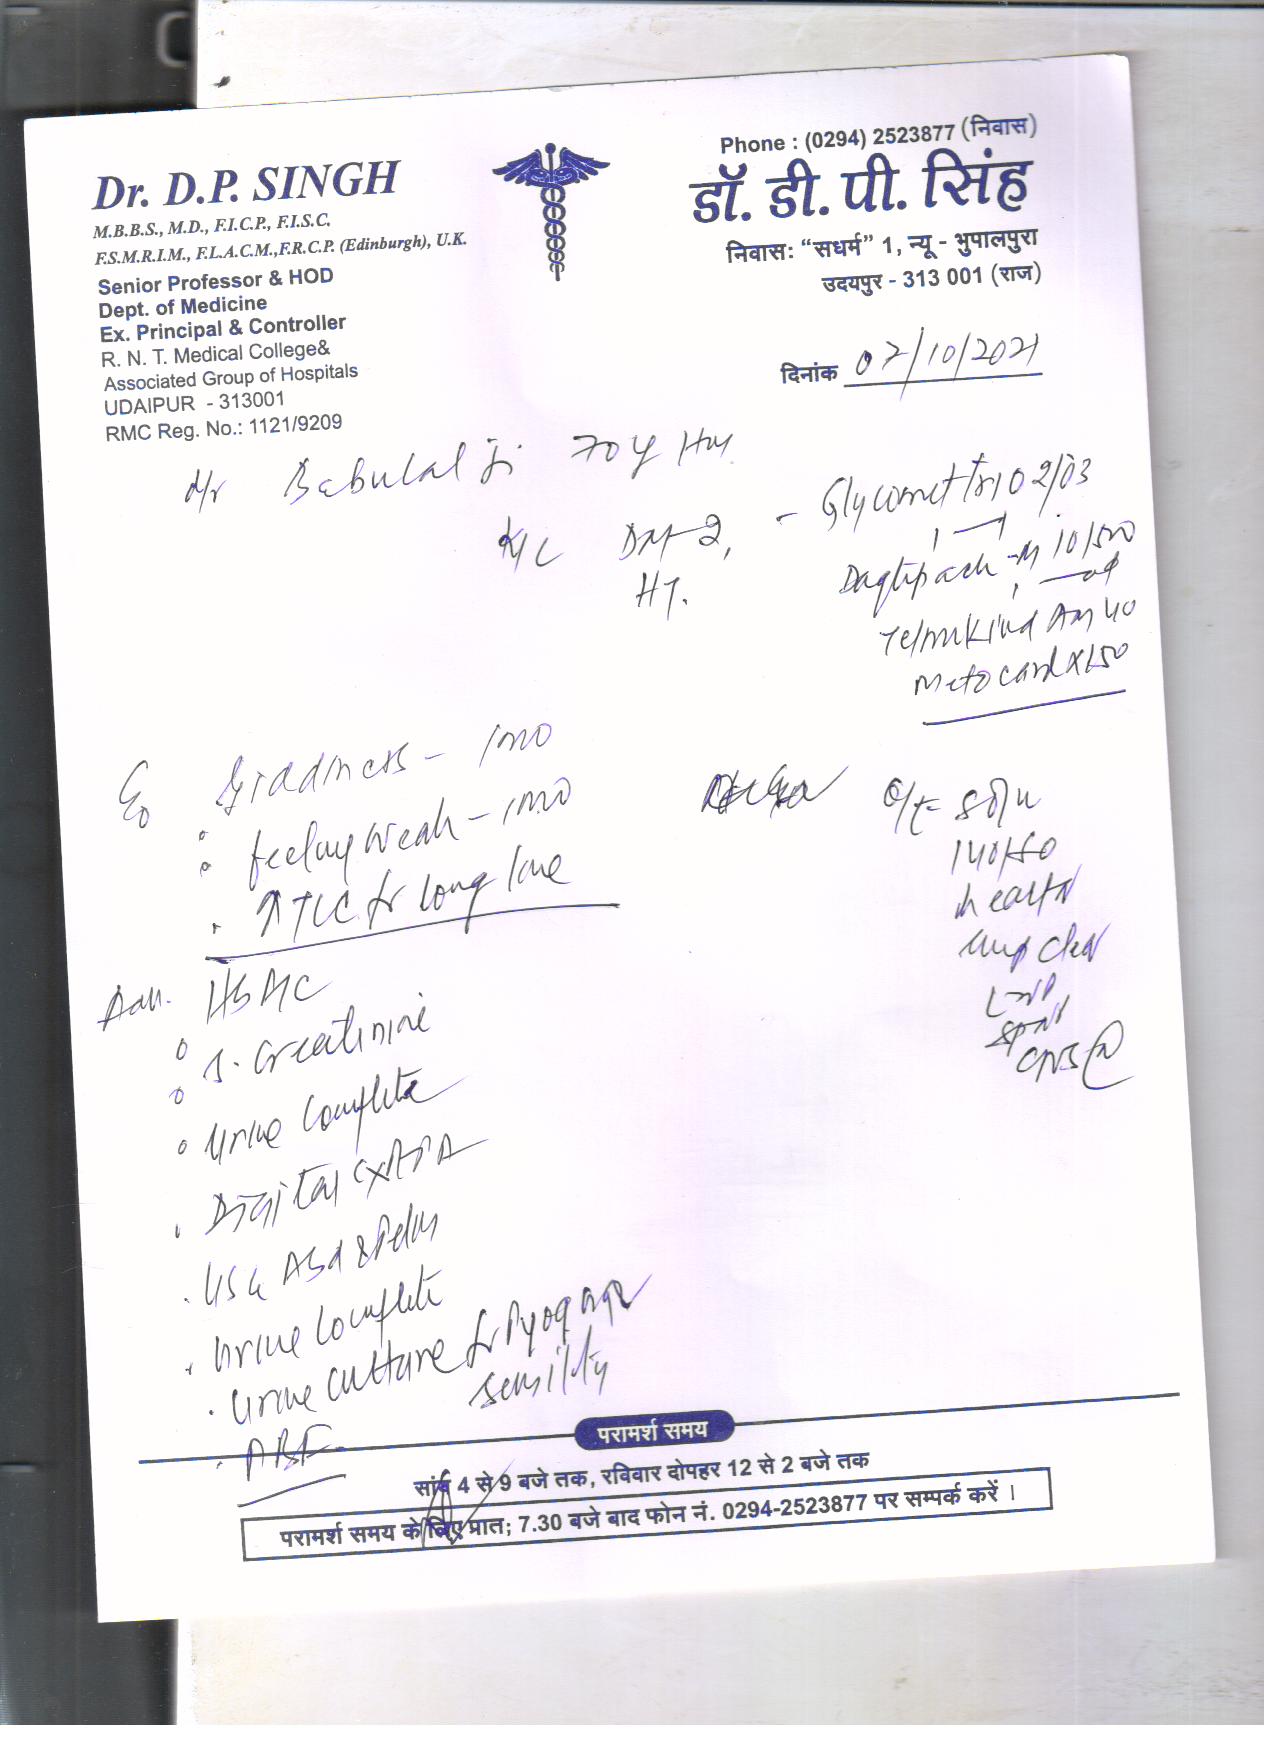 Dr. D.P. SINGH
M.B.B.S., M.D., F.I.C.P., F.I.S.C.
F.S.M.R.I.M., F.L.A.C.M.,F.R.C.P. (Edinburgh), U.K.
Senior Professor & HOD
Dept. of Medicine
Ex. Principal & Controller
R. N. T. Medical College&
Associated Group of Hospitals
UDAIPUR - 313001
RMC Reg. No.: 1121/9209
Phone : (0294) 2523877 (निवास)
डॉ. डी. पी. सिंह
निवास: “सधर्म” 1, न्यू - भुपालपुरा
उदयपुर - 313 001 (राज)
दिनांक 07/10/2021
Babulal Ji 70 y
K/C DM-2,
HT.
- Glycomet Trio 2/03
10/500
Telmikind Am 40
Metocard XL 50
Giddiness - 1mo
feeling weak - 1mo
↑TLC for long time
O/E
140/80
heart
lung clear
CNS
Adv.
S. Creatinine
Urine Complete
Digital CXR PA
USG Abd & Pelvis
Urine Complete
Urine Culture for Pyogenic
sensitivity
परामर्श समय
सांय 4 से 9 बजे तक, रविवार दोपहर 12 से 2 बजे तक
परामर्श समय के लिए प्रात; 7.30 बजे बाद फोन नं. 0294-2523877 पर सम्पर्क करें ।